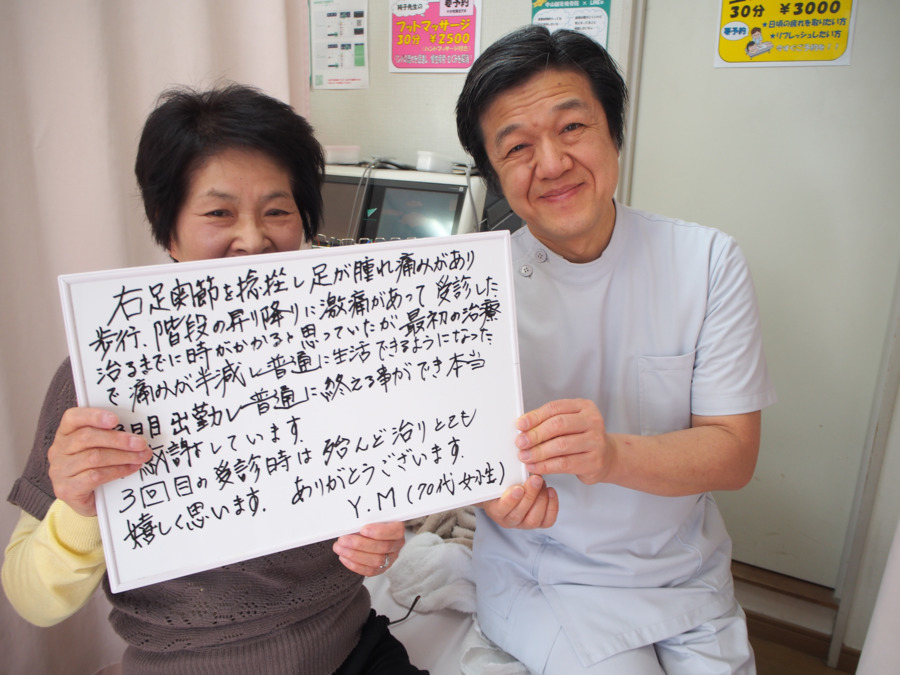 純子先生の
要予約
フットマッサージ
30分 ¥2500
(ハンドマッサージ付き)
30分 ¥3000
要予約
★日頃の疲れを取りたい方
★リフレッシュしたい方
右足関節を捻挫し足が腫れ痛みがあり
歩行、階段の昇り降りに激痛があって受診した
治るまでに時がかかると思っていたが最初の治療
で痛みが半減し普通に生活できるようになった
日目出勤し普通に終える事ができ本当
感謝しています.
3回目の受診時は殆んど治りとても
嬉しく思います. ありがとうございます.
Y.M (70代女性)